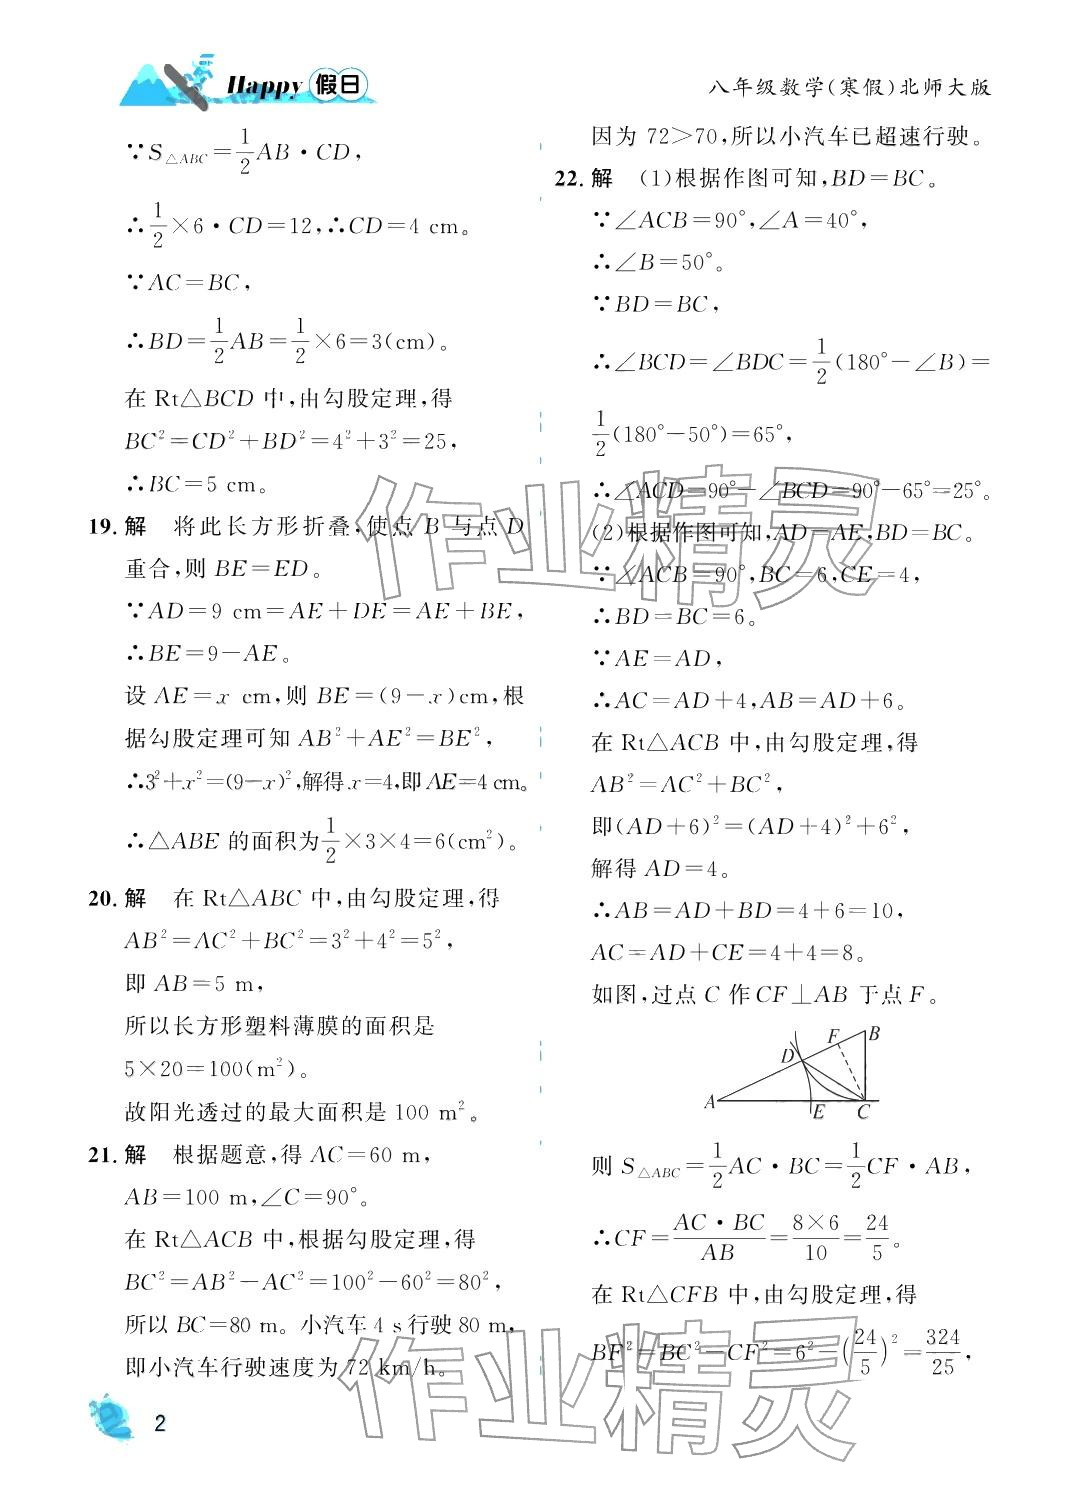 Happy 假日
八年级数学(寒假)北师大版
∵S△ABC=1/2AB·CD,
∴1/2×6·CD=12,∴CD=4 cm。
∵AC=BC,
∴BD=1/2AB=1/2×6=3(cm)。
在 Rt△BCD 中,由勾股定理,得
BC²=CD²+BD²=4²+3²=25,
∴BC=5 cm。
19. 解 将此长方形折叠,使点 B 与点 D
重合,则 BE=ED。
∵AD=9 cm=AE+DE=AE+BE,
∴BE=9-AE。
设 AE=x cm,则 BE=(9-x)cm,根
据勾股定理可知 AB²+AE²=BE²,
∴3²+x²=(9-x)²,解得x=4,即AE=4 cm。
∴△ABE 的面积为1/2×3×4=6(cm²)。
20. 解 在 Rt△ABC 中,由勾股定理,得
AB²=AC²+BC²=3²+4²=5²,
即 AB=5 m,
所以长方形塑料薄膜的面积是
5×20=100(m²)。
故阳光透过的最大面积是 100 m²。
21. 解 根据题意,得 AC=60 m,
AB=100 m,∠C=90°。
在 Rt△ACB 中,根据勾股定理,得
BC²=AB²-AC²=100²-60²=80²,
所以 BC=80 m。小汽车 4 s 行驶 80 m,
即小汽车行驶速度为 72 km/h。
因为 72>70,所以小汽车已超速行驶。
22. 解 (1)根据作图可知,BD=BC。
∵∠ACB=90°,∠A=40°,
∴∠B=50°。
∵BD=BC,
∴∠BCD=∠BDC=1/2(180°-∠B)=
1/2(180°-50°)=65°,
∴∠ACD=90°-∠BCD=90°-65°=25°。
(2)根据作图可知,AD=AE,BD=BC。
∵∠ACB=90°,BC=6,CE=4,
∴BD=BC=6。
∵AE=AD,
∴AC=AD+4,AB=AD+6。
在 Rt△ACB 中,由勾股定理,得
AB²=AC²+BC²,
即(AD+6)²=(AD+4)²+6²,
解得 AD=4。
∴AB=AD+BD=4+6=10,
AC=AD+CE=4+4=8。
如图,过点 C 作 CF⊥AB 于点 F。
F B
D
A E C
则 S△ABC=1/2AC·BC=1/2CF·AB,
∴CF=AC·BC/AB=8×6/10=24/5。
在 Rt△CFB 中,由勾股定理,得
BF²=BC²-CF²=6²-(24/5)²=324/25,
作业精灵
作业精灵
2